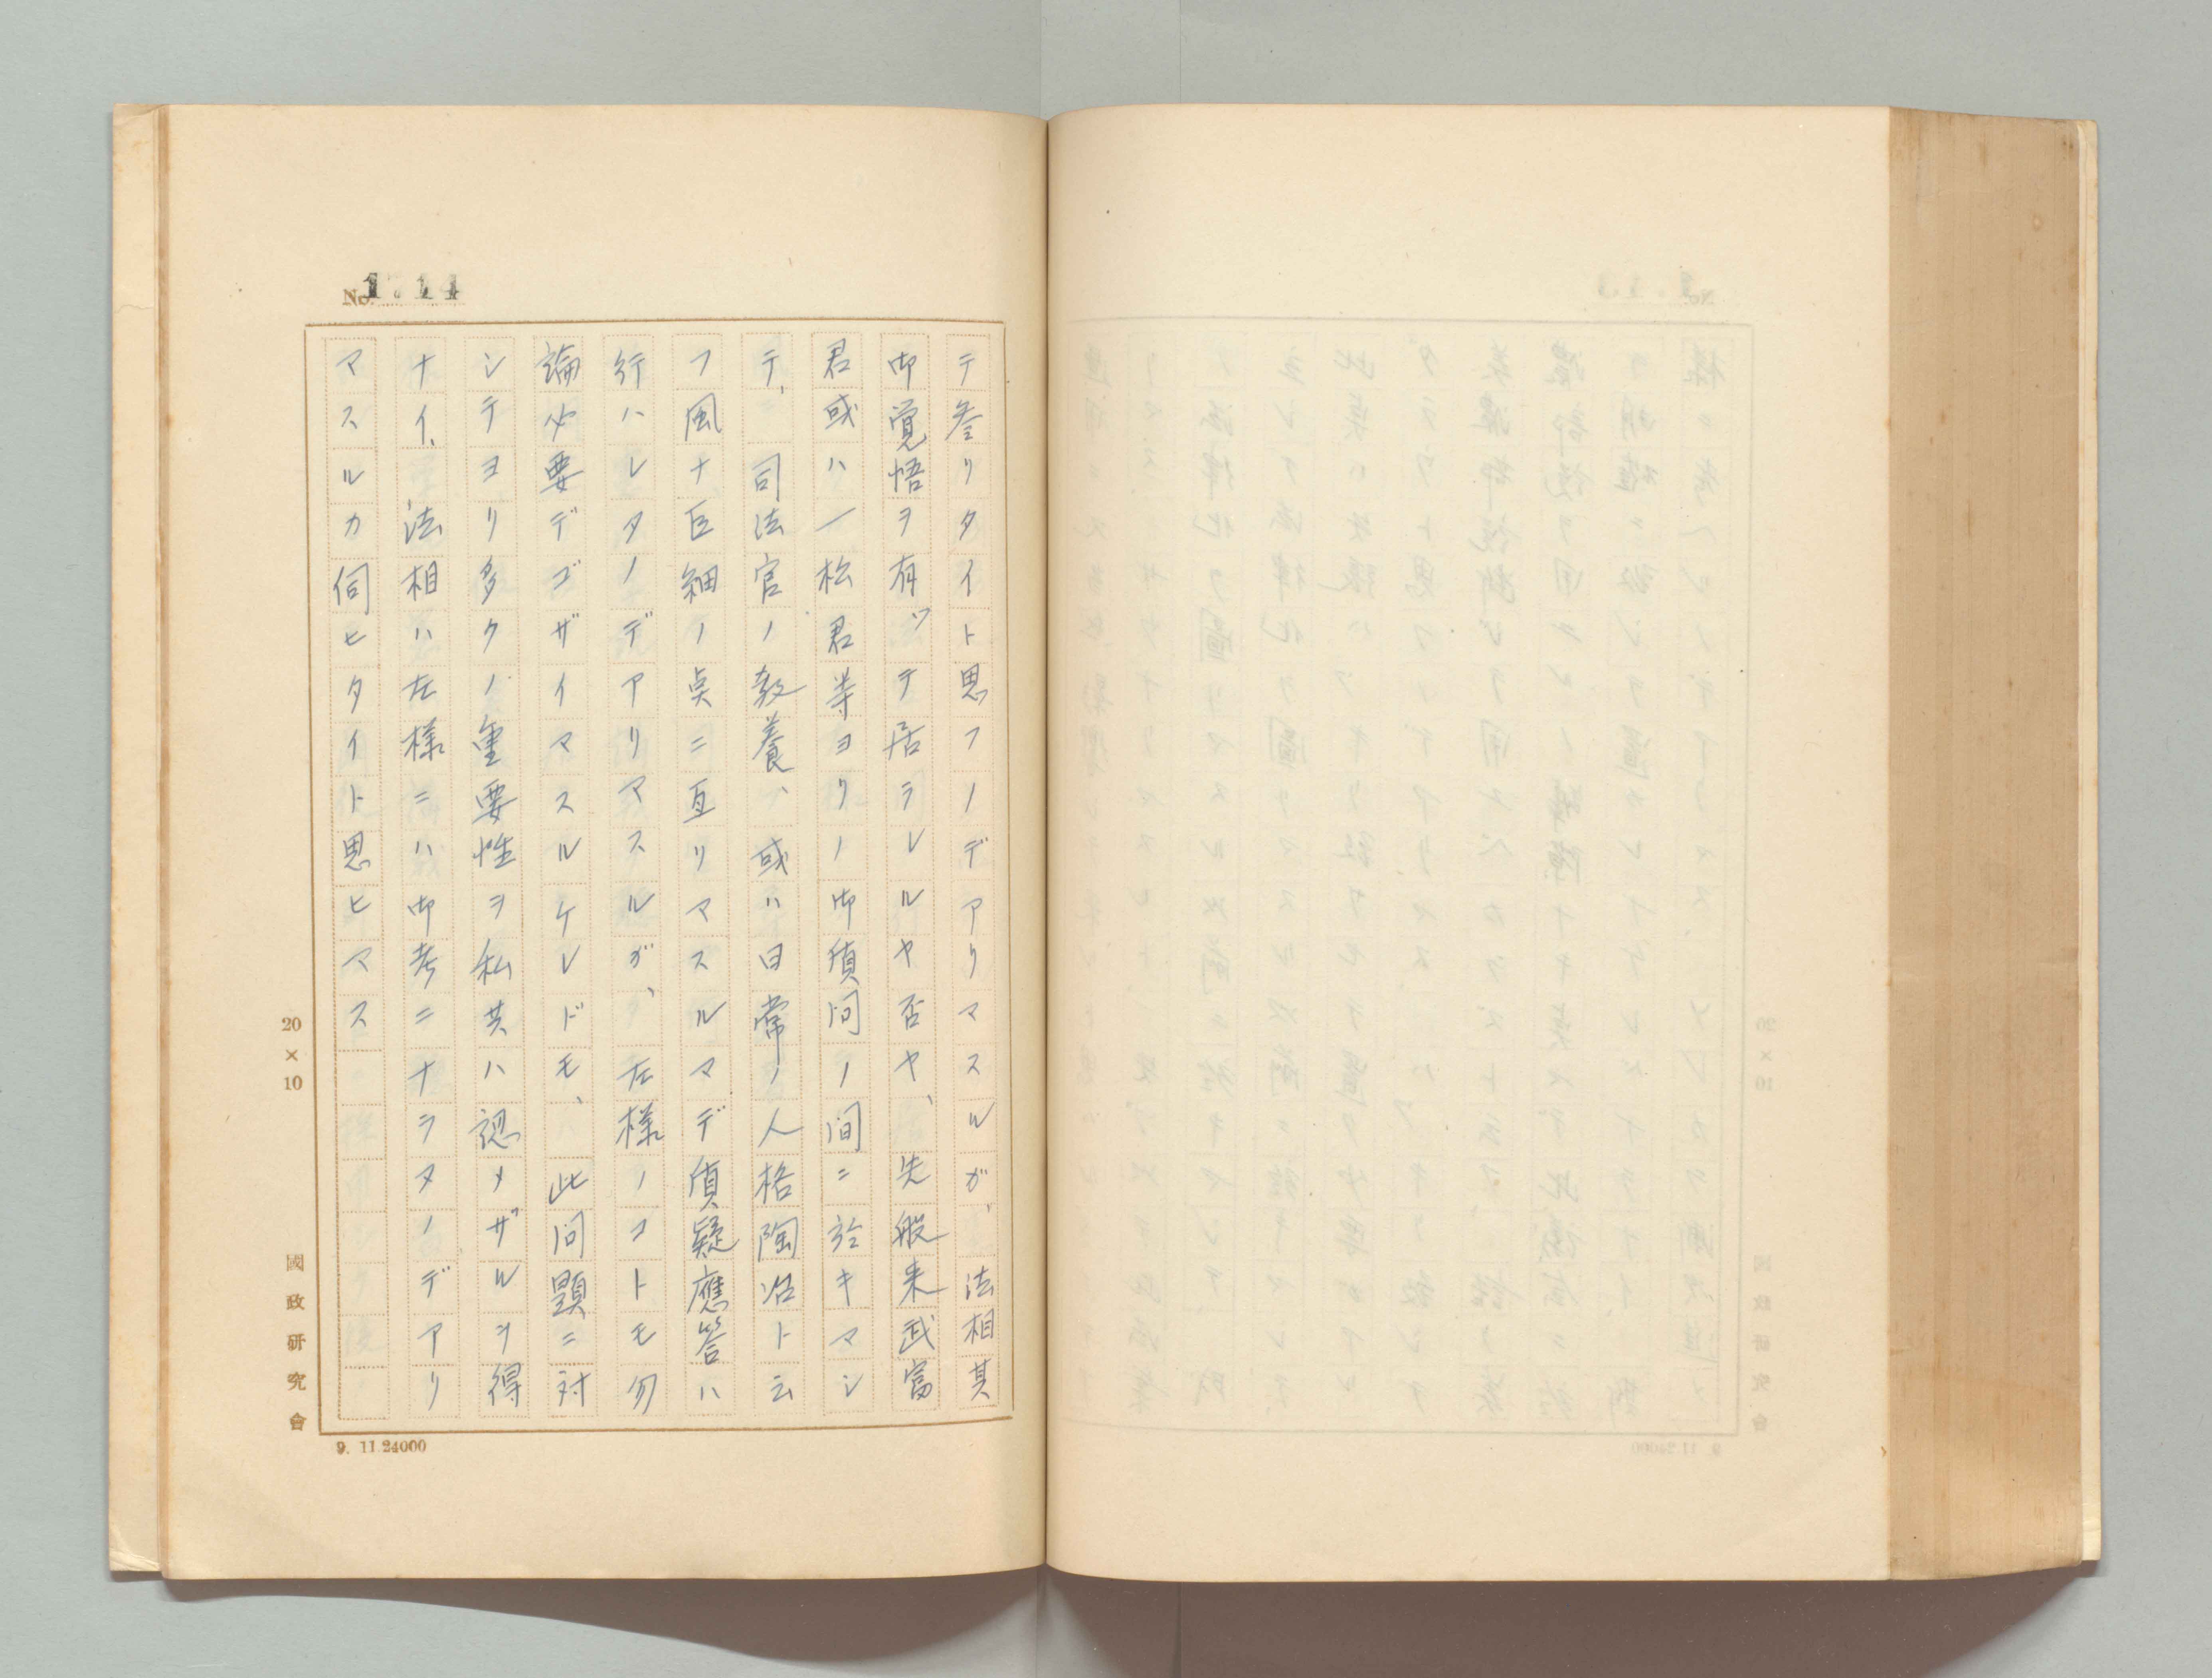 No. 1.14
テ参リタイト思フノデアリマスルガ、法相其
御覚悟ヲ有ッテ居ラレルヤ否ヤ、先般来武富
君或ハ一松君等ヨリノ御質問ノ間ニ於キマシ
テ、司法官ノ教養、或ハ日常ノ人格陶冶ト云
フ風ナ巨細ノ点ニ亙リマスルマデ質疑應答ハ
行ハレタノデアリマスルガ、左様ノコトモ勿
論必要デゴザイマスルケレドモ、此問題ニ対
シテヨリ多クノ重要性ヲ私共ハ認メザルヲ得
ナイ、法相ハ左様ニハ御考ニナラヌノデアリ
マスルカ伺ヒタイト思ヒマス
20×10
國政研究會
9. 11.24000